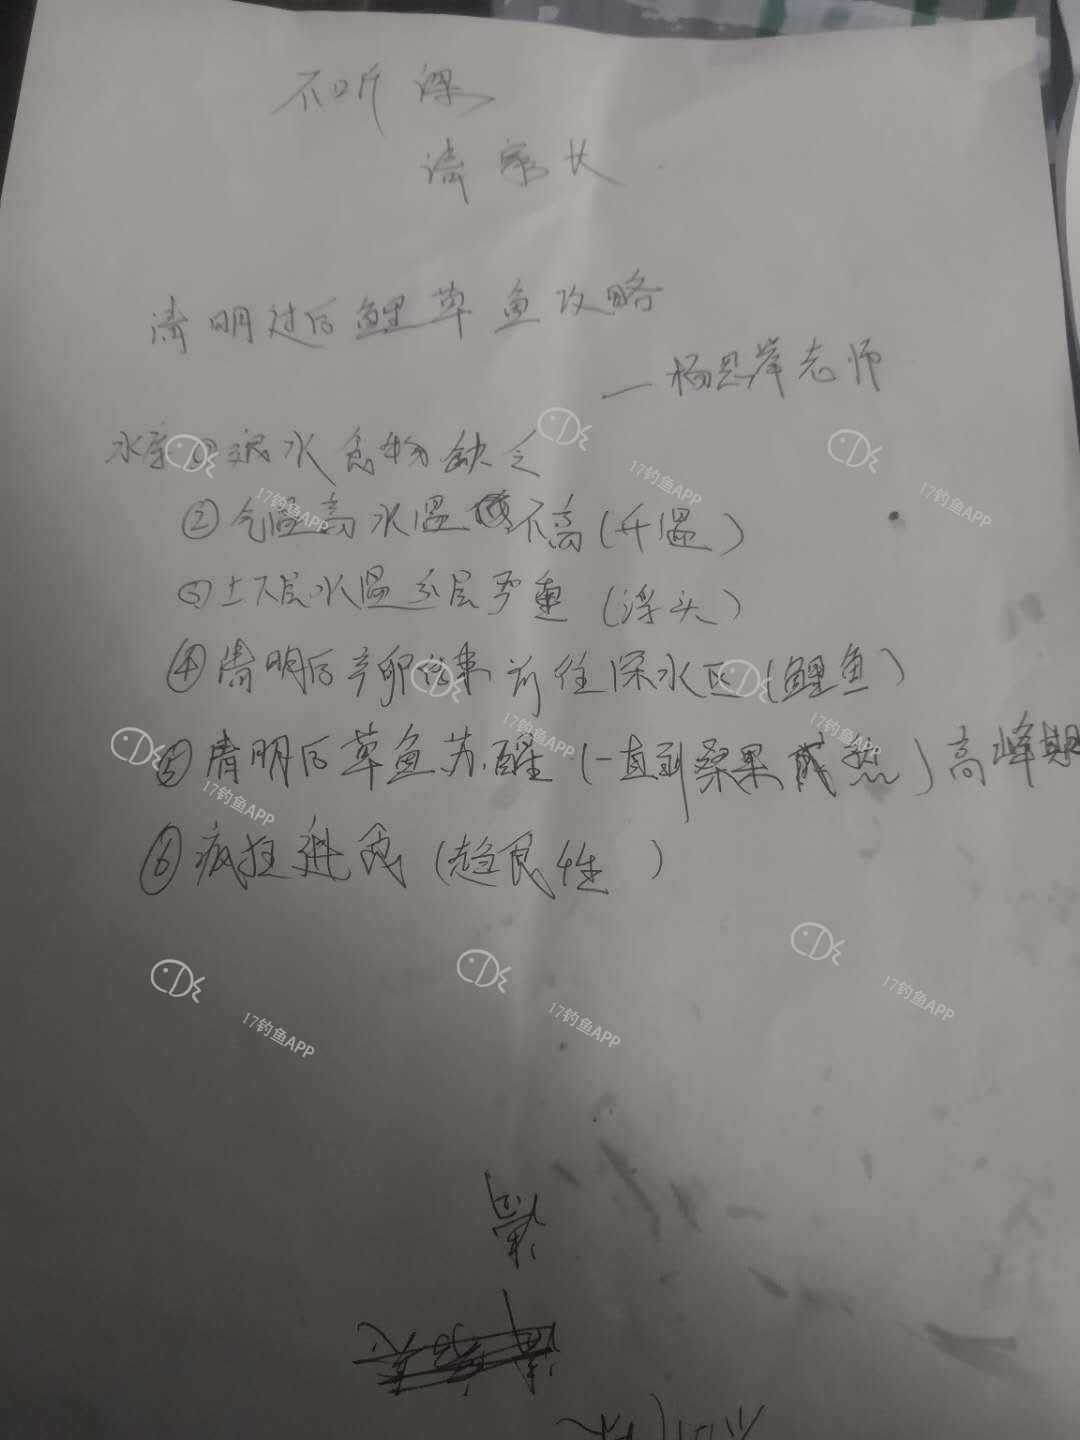 不听课
请家长
清明过后鲤草鱼攻略
—杨恩岸老师
水库①退水食物缺乏
②气温高水温不高(升温)
③上下层水温分层严重(浮头)
④清明后产卵结束前往深水区(鲤鱼)
⑤清明后草鱼苏醒(一直到桑果成熟)高峰期
⑥疯狂进食(趋食性)
17钓鱼APP
17钓鱼APP
17钓鱼APP
17钓鱼APP
17钓鱼APP
17钓鱼APP
17钓鱼APP
17钓鱼APP
17钓鱼APP